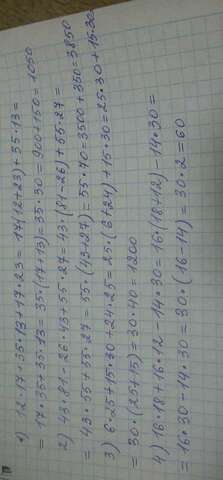 1) 12·17+35·13+17·23=17(12+23)+35·13=
=17·35+35·13=35·(17+13)=35·30=900+150=1050
2) 43·81-26·43+55·27=43·(81-26)+55·27=
=43·55+55·27=55·(43+27)=55·70=3500+350=3850
3) 6·25+15·30+24·25=25·(6+24)+15·30=25·30+15·30
=30·(25+15)=30·40=1200
4) 16·18+16·12-14·30=16(18+12)-14·30=
=16·30-14·30=30·(16-14)=30·2=60